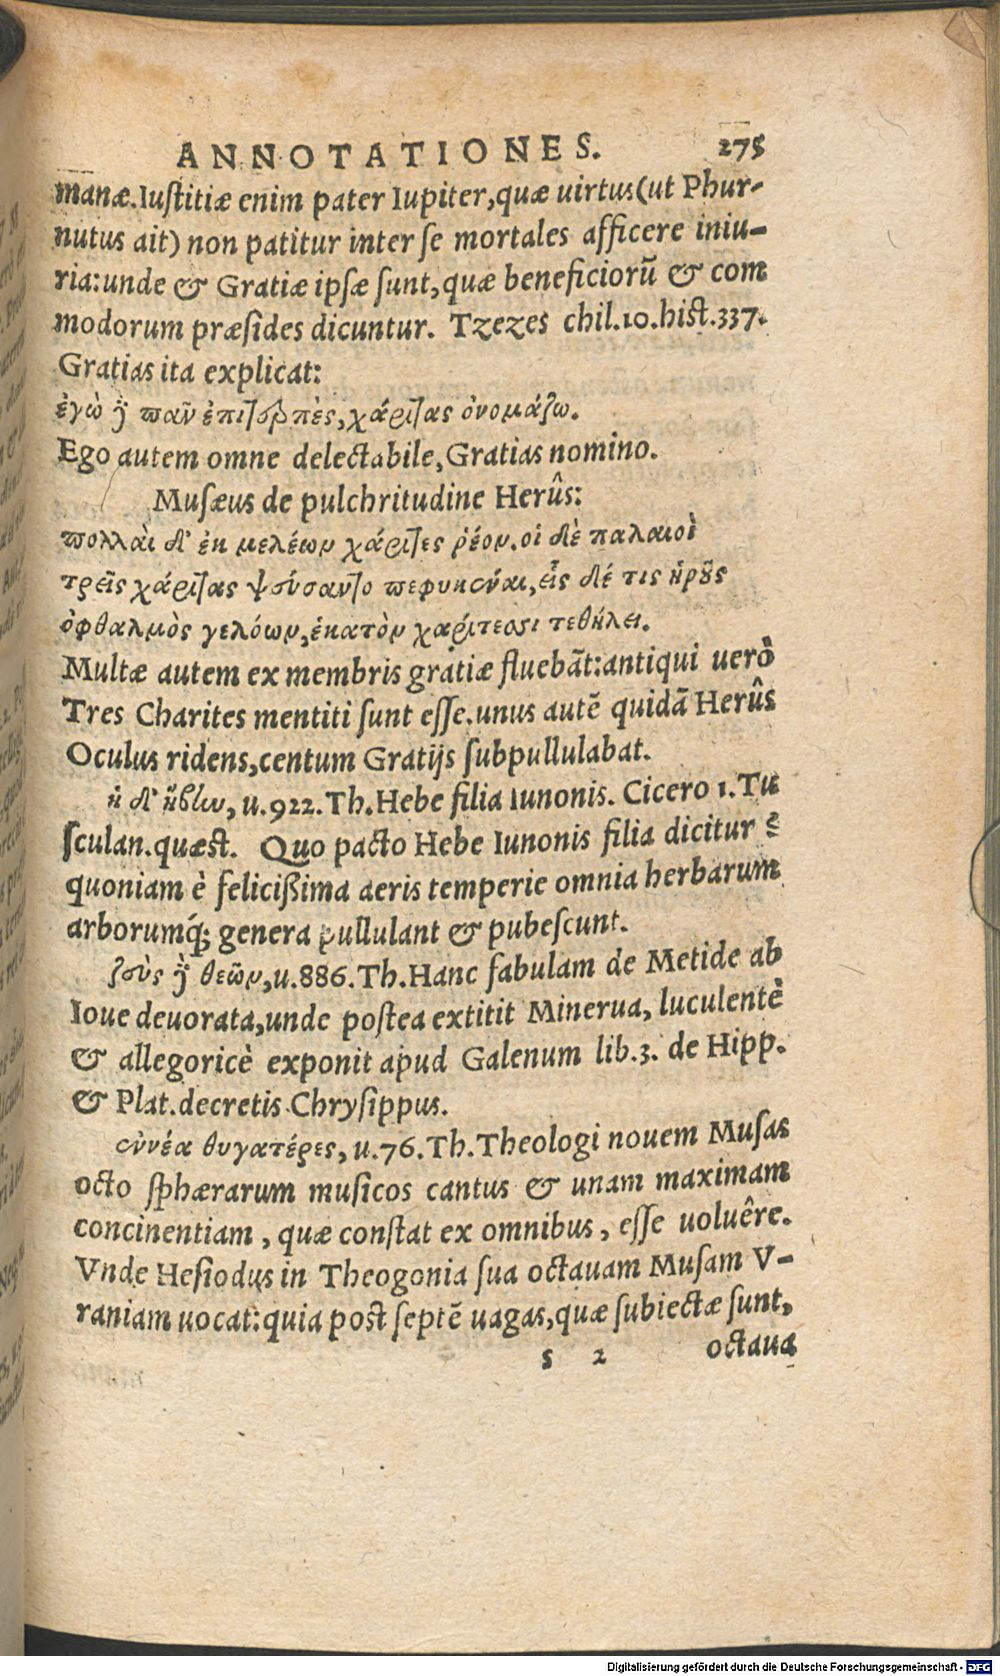 ANNOTATIONES. 275
manæ. Iuſtitiæ enim pater Iupiter, quæ uirtus (ut Phur-
nutus ait) non patitur inter ſe mortales afficere iniu-
ria: unde & Gratiæ ipſæ ſunt, quæ beneficiorū & com
modorum præſides dicuntur. Tzezes chil.10.hiſt.337.
Gratias ita explicat:
ἐγὼ ἢ παῦ ἐπιτερπὲς, χάριτας ὀνομάζω.
Ego autem omne delectabile, Gratias nomino.
Muſæus de pulchritudine Herûs:
πολλαὶ δ' ἐκ μελέων χάριτες ῥέον. οἱ δὲ παλαιοὶ
τρεῖς χάριτας ψεύσαντο πεφυκέναι, εἷς δέ τις ἡροῦς
ὀφθαλμὸς γελόων, ἑκατὸν χαρίτεσσι τεθήλει.
Multæ autem ex membris gratiæ fluebāt: antiqui uerò
Tres Charites mentiti ſunt eſſe. unus autē quidā Herûs
Oculus ridens, centum Gratijs ſubpullulabat.
ἡ δ' ἥβην, u.922. Th. Hebe filia Iunonis. Cicero 1. Tu
ſculan. quæſt. Quo pacto Hebe Iunonis filia dicitur ?
quoniam è feliciſſima aeris temperie omnia herbarum
arborumq́; genera pullulant & pubeſcunt.
ζεὺς ἢ θεῶν, u.886. Th. Hanc fabulam de Metide ab
Ioue deuorata, unde poſtea extitit Minerua, luculentè
& allegoricè exponit apud Galenum lib.3. de Hipp.
& Plat. decretis Chryſippus.
ἐννέα θυγατέρες, u.76. Th. Theologi nouem Muſas
octo ſphærarum muſicos cantus & unam maximam
concinentiam, quæ conſtat ex omnibus, eſſe uoluêre.
Vnde Heſiodus in Theogonia ſua octauam Muſam V-
raniam uocat: quia poſt ſeptē uagas, quæ ſubiectæ ſunt,
s 2 octaua
Digitalisierung gefördert durch die Deutsche Forschungsgemeinschaft - DFG